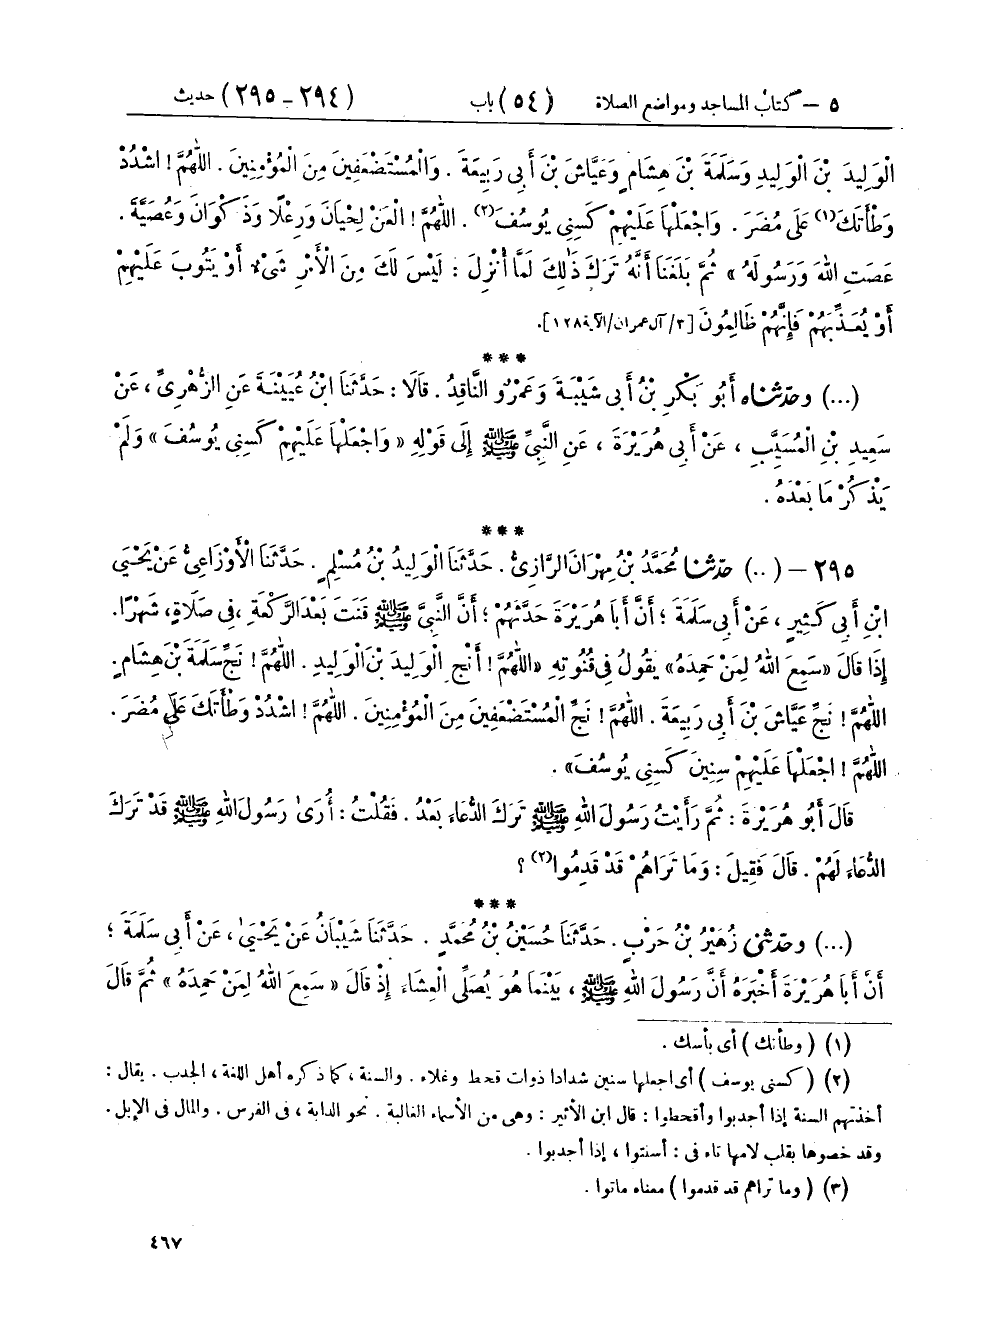 ٥ – كتاب المساجد ومواضع الصلاة (٥٤) باب (٢٩٤ – ٢٩٥) حديث
الْوَلِيدَ بْنَ الْوَلِيدِ وَسَلَمَةَ بْنَ هِشَامٍ وَعَيَّاشَ بْنَ أَبِي رَبِيعَةَ . وَالْمُسْتَضْعَفِينَ مِنَ الْمُؤْمِنِينَ . اللّٰهُمَّ ! اشْدُدْ
وَطْأَتَكَ(١) عَلَى مُضَرَ . وَاجْعَلْهَا عَلَيْهِمْ كَسِنِي يُوسُفَ(٢) . اللّٰهُمَّ ! الْعَنْ لِحْيَانَ وَرِعْلًا وَذَكْوَانَ وَعُصَيَّةَ .
عَصَتِ اللّٰهَ وَرَسُولَهُ » ثُمَّ بَلَغَنَا أَنَّهُ تَرَكَ ذٰلِكَ لَمَّا أُنْزِلَ : لَيْسَ لَكَ مِنَ الْأَمْرِ شَيْءٌ أَوْ يَتُوبَ عَلَيْهِمْ
أَوْ يُعَذِّبَهُمْ فَإِنَّهُمْ ظَالِمُونَ [٣/آل عمران/الآية ١٢٨].
***
(...) وحدّثناه أَبُو بَكْرِ بْنُ أَبِي شَيْبَةَ وَعَمْرٌو النَّاقِدُ . قَالَا : حَدَّثَنَا ابْنُ عُيَيْنَةَ عَنِ الزُّهْرِيِّ ، عَنْ
سَعِيدِ بْنِ الْمُسَيَّبِ ، عَنْ أَبِي هُرَيْرَةَ ، عَنِ النَّبِيِّ ﷺ إِلَى قَوْلِهِ « وَاجْعَلْهَا عَلَيْهِمْ كَسِنِي يُوسُفَ » وَلَمْ
يَذْكُرْ مَا بَعْدَهُ .
***
٢٩٥ – (..) حدّثنا مُحَمَّدُ بْنُ مِهْرَانَ الرَّازِيُّ . حَدَّثَنَا الْوَلِيدُ بْنُ مُسْلِمٍ . حَدَّثَنَا الْأَوْزَاعِيُّ عَنْ يَحْيَى
ابْنِ أَبِي كَثِيرٍ ، عَنْ أَبِي سَلَمَةَ ؛ أَنَّ أَبَا هُرَيْرَةَ حَدَّثَهُمْ ؛ أَنَّ النَّبِيَّ ﷺ قَنَتَ بَعْدَ الرَّكْعَةِ ، فِي صَلَاةٍ، شَهْرًا.
إِذَا قَالَ «سَمِعَ اللّٰهُ لِمَنْ حَمِدَهُ» يَقُولُ فِي قُنُوتِهِ «اللّٰهُمَّ ! أَنْجِ الْوَلِيدَ بْنَ الْوَلِيدِ . اللّٰهُمَّ ! نَجِّ سَلَمَةَ بْنَ هِشَامٍ.
اللّٰهُمَّ ! نَجِّ عَيَّاشَ بْنَ أَبِي رَبِيعَةَ . اللّٰهُمَّ ! نَجِّ الْمُسْتَضْعَفِينَ مِنَ الْمُؤْمِنِينَ . اللّٰهُمَّ ! اشْدُدْ وَطْأَتَكَ عَلَى مُضَرَ .
اللّٰهُمَّ ! اجْعَلْهَا عَلَيْهِمْ سِنِينَ كَسِنِي يُوسُفَ» .
قَالَ أَبُو هُرَيْرَةَ : ثُمَّ رَأَيْتُ رَسُولَ اللّٰهِ ﷺ تَرَكَ الدُّعَاءَ بَعْدُ . فَقُلْتُ : أُرَىٰ رَسُولَ اللّٰهِ ﷺ قَدْ تَرَكَ
الدُّعَاءَ لَهُمْ . قَالَ فَقِيلَ : وَمَا تَرَاهُمْ قَدْ قَدِمُوا(٣) ؟
***
(...) وحدّثني زُهَيْرُ بْنُ حَرْبٍ . حَدَّثَنَا حُسَيْنُ بْنُ مُحَمَّدٍ . حَدَّثَنَا شَيْبَانُ عَنْ يَحْيَىٰ ، عَنْ أَبِي سَلَمَةَ ؛
أَنَّ أَبَا هُرَيْرَةَ أَخْبَرَهُ أَنَّ رَسُولَ اللّٰهِ ﷺ ، بَيْنَمَا هُوَ يُصَلِّي الْعِشَاءَ إِذْ قَالَ « سَمِعَ اللّٰهُ لِمَنْ حَمِدَهُ » ثُمَّ قَالَ
(١) ( وطأتك ) أى بأسك .
(٢) ( كسنى يوسف ) أى اجعلها سنين شدادا ذوات قحط وغلاء . والسنة ، كما ذكره أهل اللغة ، الجدب . يقال :
أخذتهم السنة إذا أجدبوا وأقحطوا : قال ابن الأثير : وهى من الأسماء الغالبة . نحو الدابة ، فى الفرس . والمال فى الإبل .
وقد خصوها بقلب لامها تاء فى : أسنتوا ، إذا أجدبوا .
(٣) ( وما تراهم قد قدموا ) معناه ماتوا .
٤٦٧